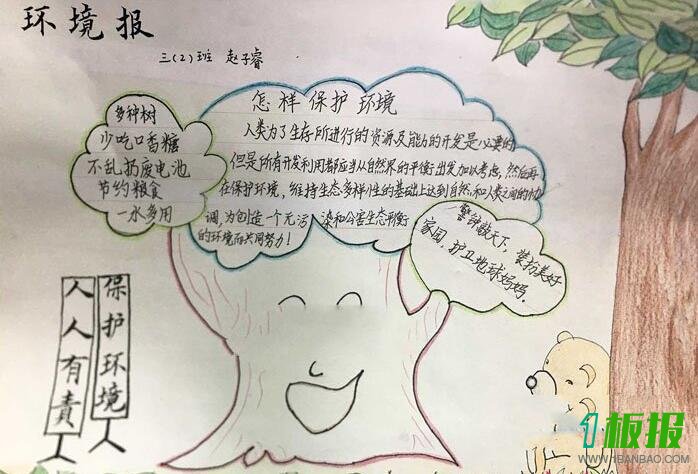 环境报
三(2)班 赵子睿
多种树
少吃口香糖
不乱扔废电池
节约粮食
一水多用
怎样保护环境
人类为了生存所进行的资源及能的开发是必要的
但是所有开发利用都应当从自然界的平衡出发加以考虑,然后再
在保护环境,维持生态多样性的基础上达到自然和人类之间的协
调,为创造一个无污染和公害生态平衡
的环境而共同努力!
天下,装扮美好
家园,护卫地球妈妈。
保护环境
人人有責
1板报
WWW.1BANBAO.COM